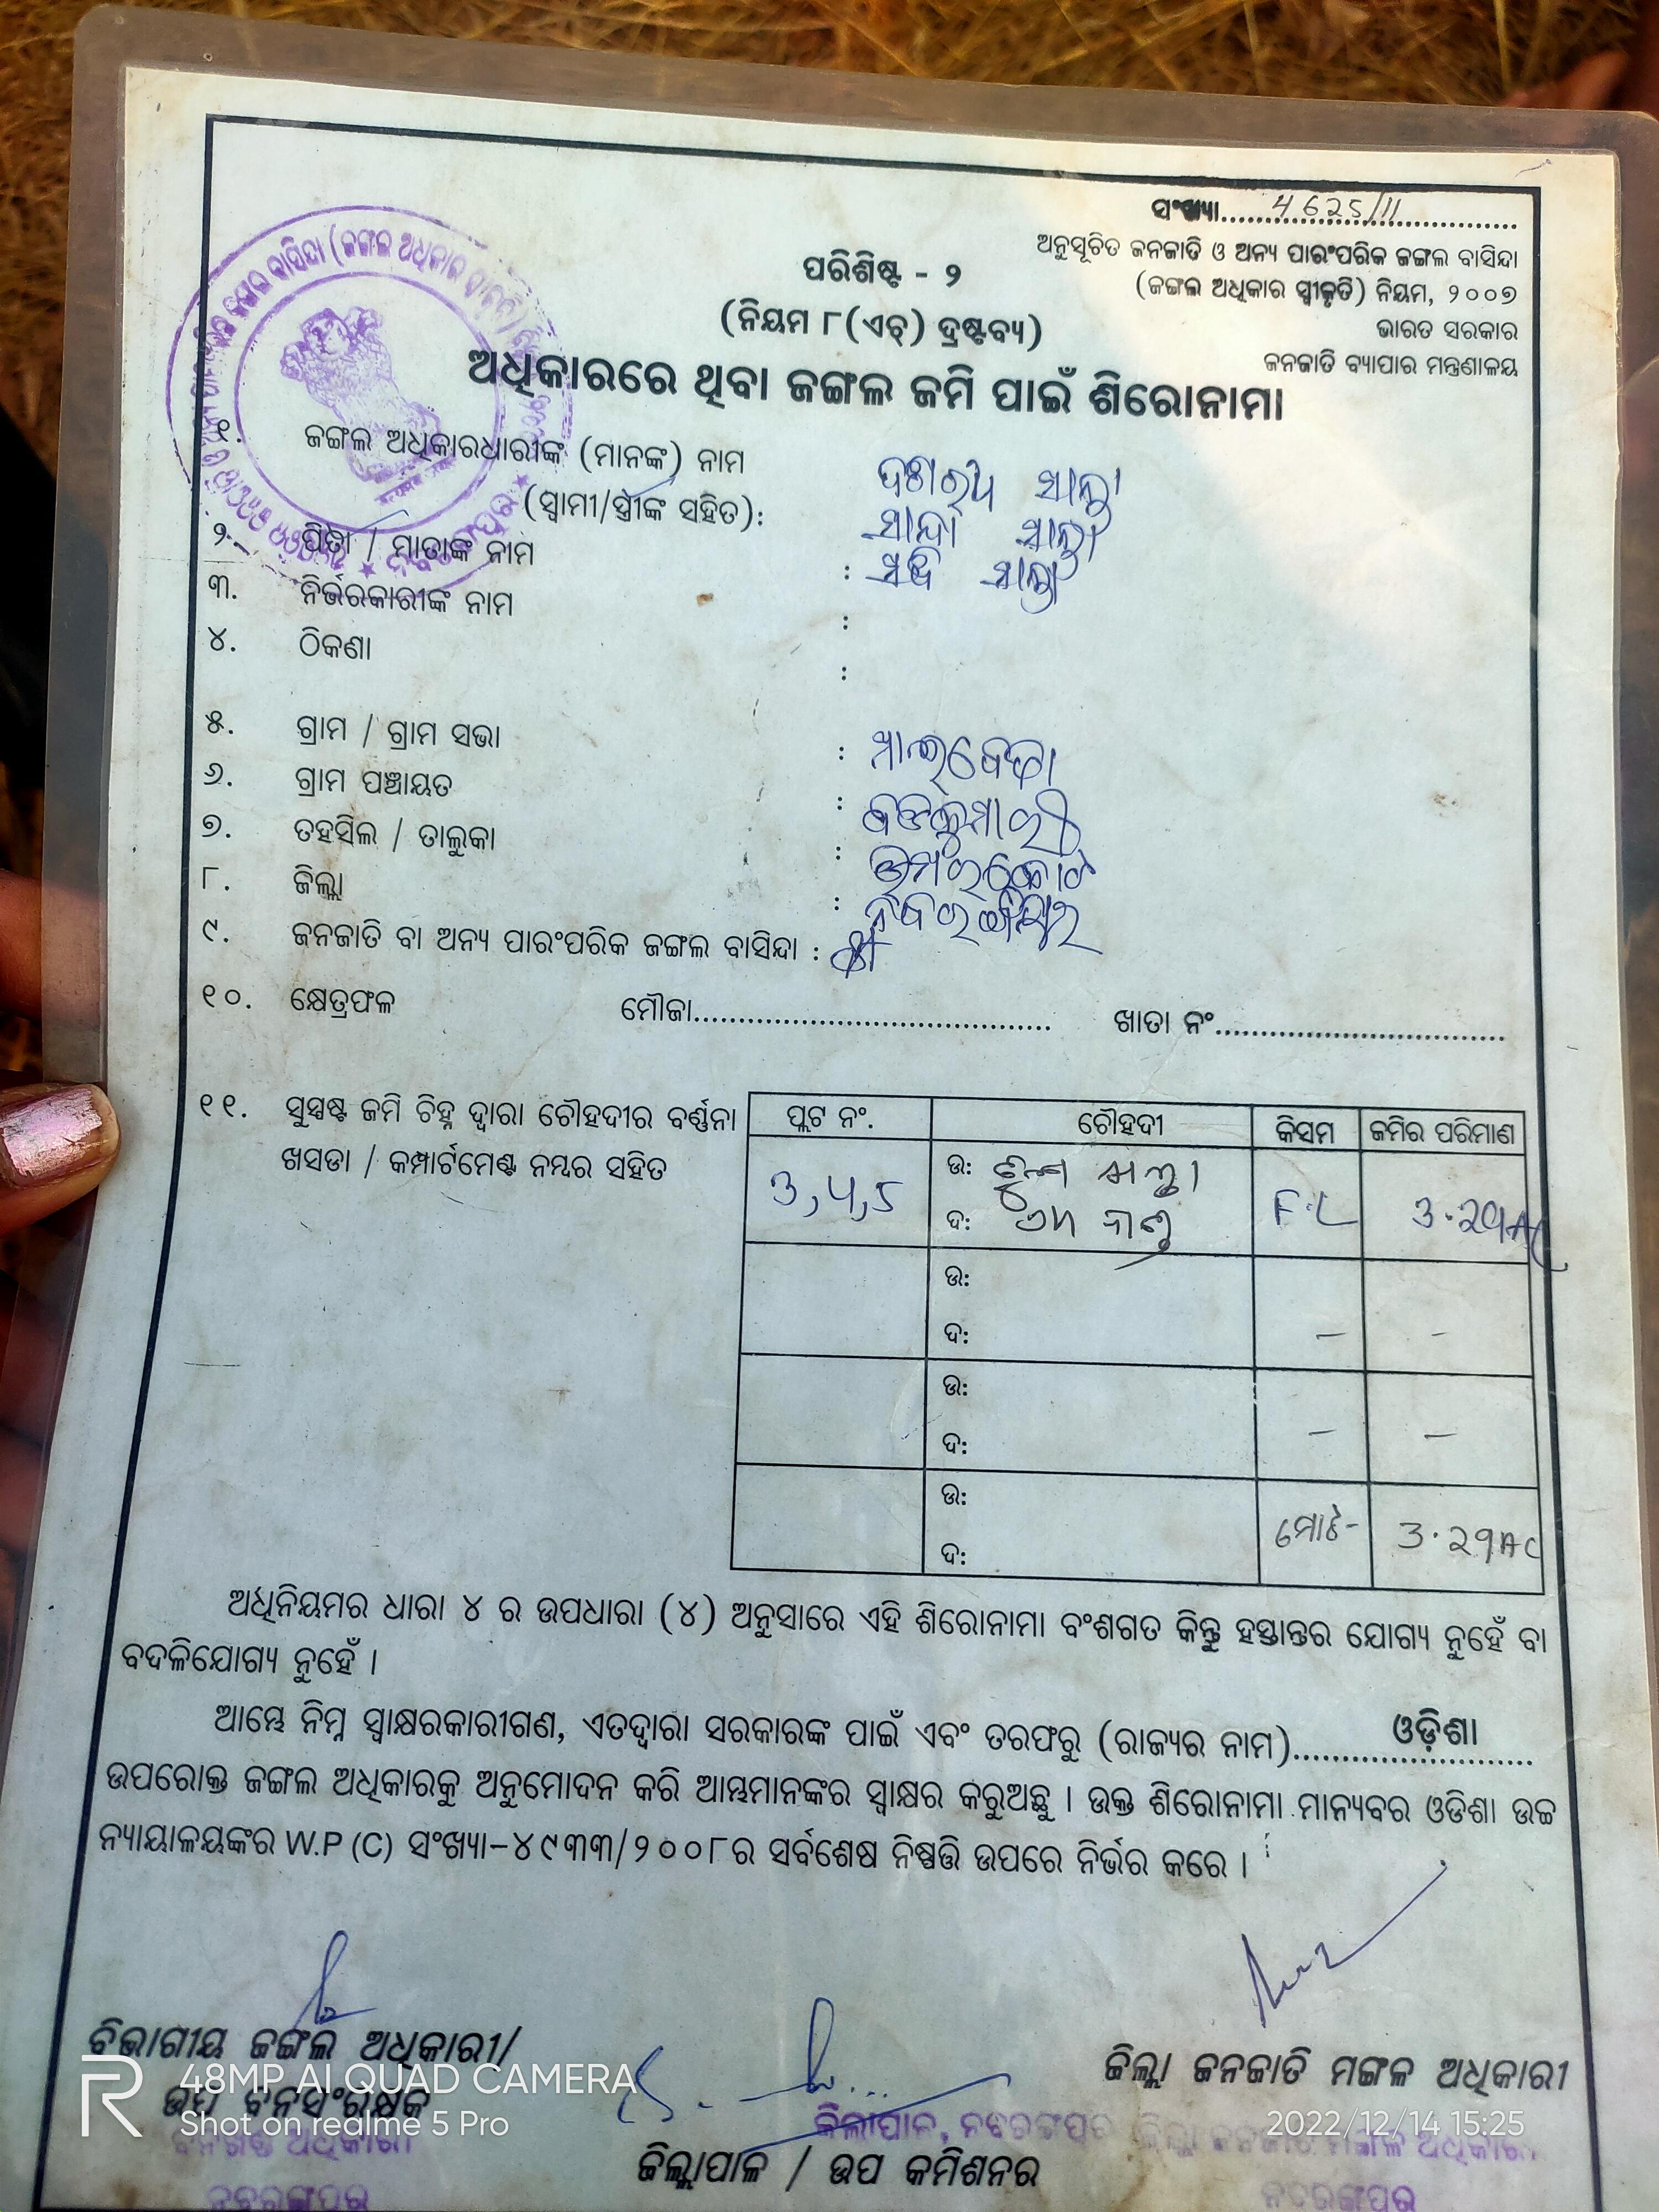 ସଂଖ୍ୟା.......4625/11.......
ଅନୁସୂଚିତ ଜନଜାତି ଓ ଅନ୍ୟ ପାରଂପରିକ ଜଙ୍ଗଲ ବାସିନ୍ଦା
(ଜଙ୍ଗଲ ଅଧିକାର ସ୍ଵୀକୃତି) ନିୟମ, ୨୦୦୭
ଭାରତ ସରକାର
ଜନଜାତି ବ୍ୟାପାର ମନ୍ତ୍ରଣାଳୟ
ପରିଶିଷ୍ଟ - ୨
(ନିୟମ ୮(ଏଚ୍) ଦ୍ରଷ୍ଟବ୍ୟ)
ଅଧିକାରରେ ଥିବା ଜଙ୍ଗଲ ଜମି ପାଇଁ ଶିରୋନାମା
୧. ଜଙ୍ଗଲ ଅଧିକାରଧାରୀଙ୍କ (ମାନଙ୍କ) ନାମ
(ସ୍ଵାମୀ/ସ୍ତ୍ରୀଙ୍କ ସହିତ):
୨. ପିତା / ମାତାଙ୍କ ନାମ :
୩. ନିର୍ଭରକାରୀଙ୍କ ନାମ :
୪. ଠିକଣା :
୫. ଗ୍ରାମ / ଗ୍ରାମ ସଭା :
୬. ଗ୍ରାମ ପଞ୍ଚାୟତ :
୭. ତହସିଲ / ତାଲୁକା : ଉମରକୋଟ
୮. ଜିଲ୍ଲା : ନବରଙ୍ଗପୁର
୯. ଜନଜାତି ବା ଅନ୍ୟ ପାରଂପରିକ ଜଙ୍ଗଲ ବାସିନ୍ଦା :
୧୦. କ୍ଷେତ୍ରଫଳ ମୌଜା........................................ ଖାତା ନଂ................................
୧୧. ସୁସ୍ପଷ୍ଟ ଜମି ଚିହ୍ନ ଦ୍ଵାରା ଚୌହଦୀର ବର୍ଣ୍ଣନା
ଖସଡା / କମ୍ପାର୍ଟମେଣ୍ଟ ନମ୍ବର ସହିତ
ପ୍ଲଟ ନଂ. ଚୌହଦୀ କିସମ ଜମିର ପରିମାଣ
ଉ: F.L ୩.୨୩AC
ଦ:
ଉ:
ଦ: – –
ଉ:
ଦ: – –
ଉ: ମୋଟ- ୩.୨୩AC
ଦ:
ଅଧିନିୟମର ଧାରା ୪ ର ଉପଧାରା (୪) ଅନୁସାରେ ଏହି ଶିରୋନାମା ବଂଶଗତ କିନ୍ତୁ ହସ୍ତାନ୍ତର ଯୋଗ୍ୟ ନୁହେଁ ବା
ବଦଳିଯୋଗ୍ୟ ନୁହେଁ ।
ଆମ୍ଭେ ନିମ୍ନ ସ୍ଵାକ୍ଷରକାରୀଗଣ, ଏତଦ୍ଵାରା ସରକାରଙ୍କ ପାଇଁ ଏବଂ ତରଫରୁ (ରାଜ୍ୟର ନାମ)......ଓଡ଼ିଶା......
ଉପରୋକ୍ତ ଜଙ୍ଗଲ ଅଧିକାରକୁ ଅନୁମୋଦନ କରି ଆମ୍ଭମାନଙ୍କର ସ୍ଵାକ୍ଷର କରୁଅଛୁ । ଉକ୍ତ ଶିରୋନାମା ମାନ୍ୟବର ଓଡିଶା ଉଚ୍ଚ
ନ୍ୟାୟାଳୟଙ୍କର W.P (C) ସଂଖ୍ୟା-୪୯୩୩/୨୦୦୮ର ସର୍ବଶେଷ ନିଷ୍ପତ୍ତି ଉପରେ ନିର୍ଭର କରେ ।
ବିଭାଗୀୟ ଜଙ୍ଗଲ ଅଧିକାରୀ/
ଉପ ବନସଂରକ୍ଷକ
ବନଖଣ୍ଡ ଅଧିକାରୀ
ନବରଙ୍ଗପୁର
ଜିଲ୍ଲାପାଳ, ନବରଙ୍ଗପୁର
ଜିଲ୍ଲାପାଳ / ଉପ କମିଶନର
ଜିଲ୍ଲା ଜନଜାତି ମଙ୍ଗଳ ଅଧିକାରୀ
ଜିଲ୍ଲା ଜନଜାତି ମଙ୍ଗଳ ଅଧିକାରୀ
ନବରଙ୍ଗପୁର
48MP AI QUAD CAMERA
Shot on realme 5 Pro
2022/12/14 15:25